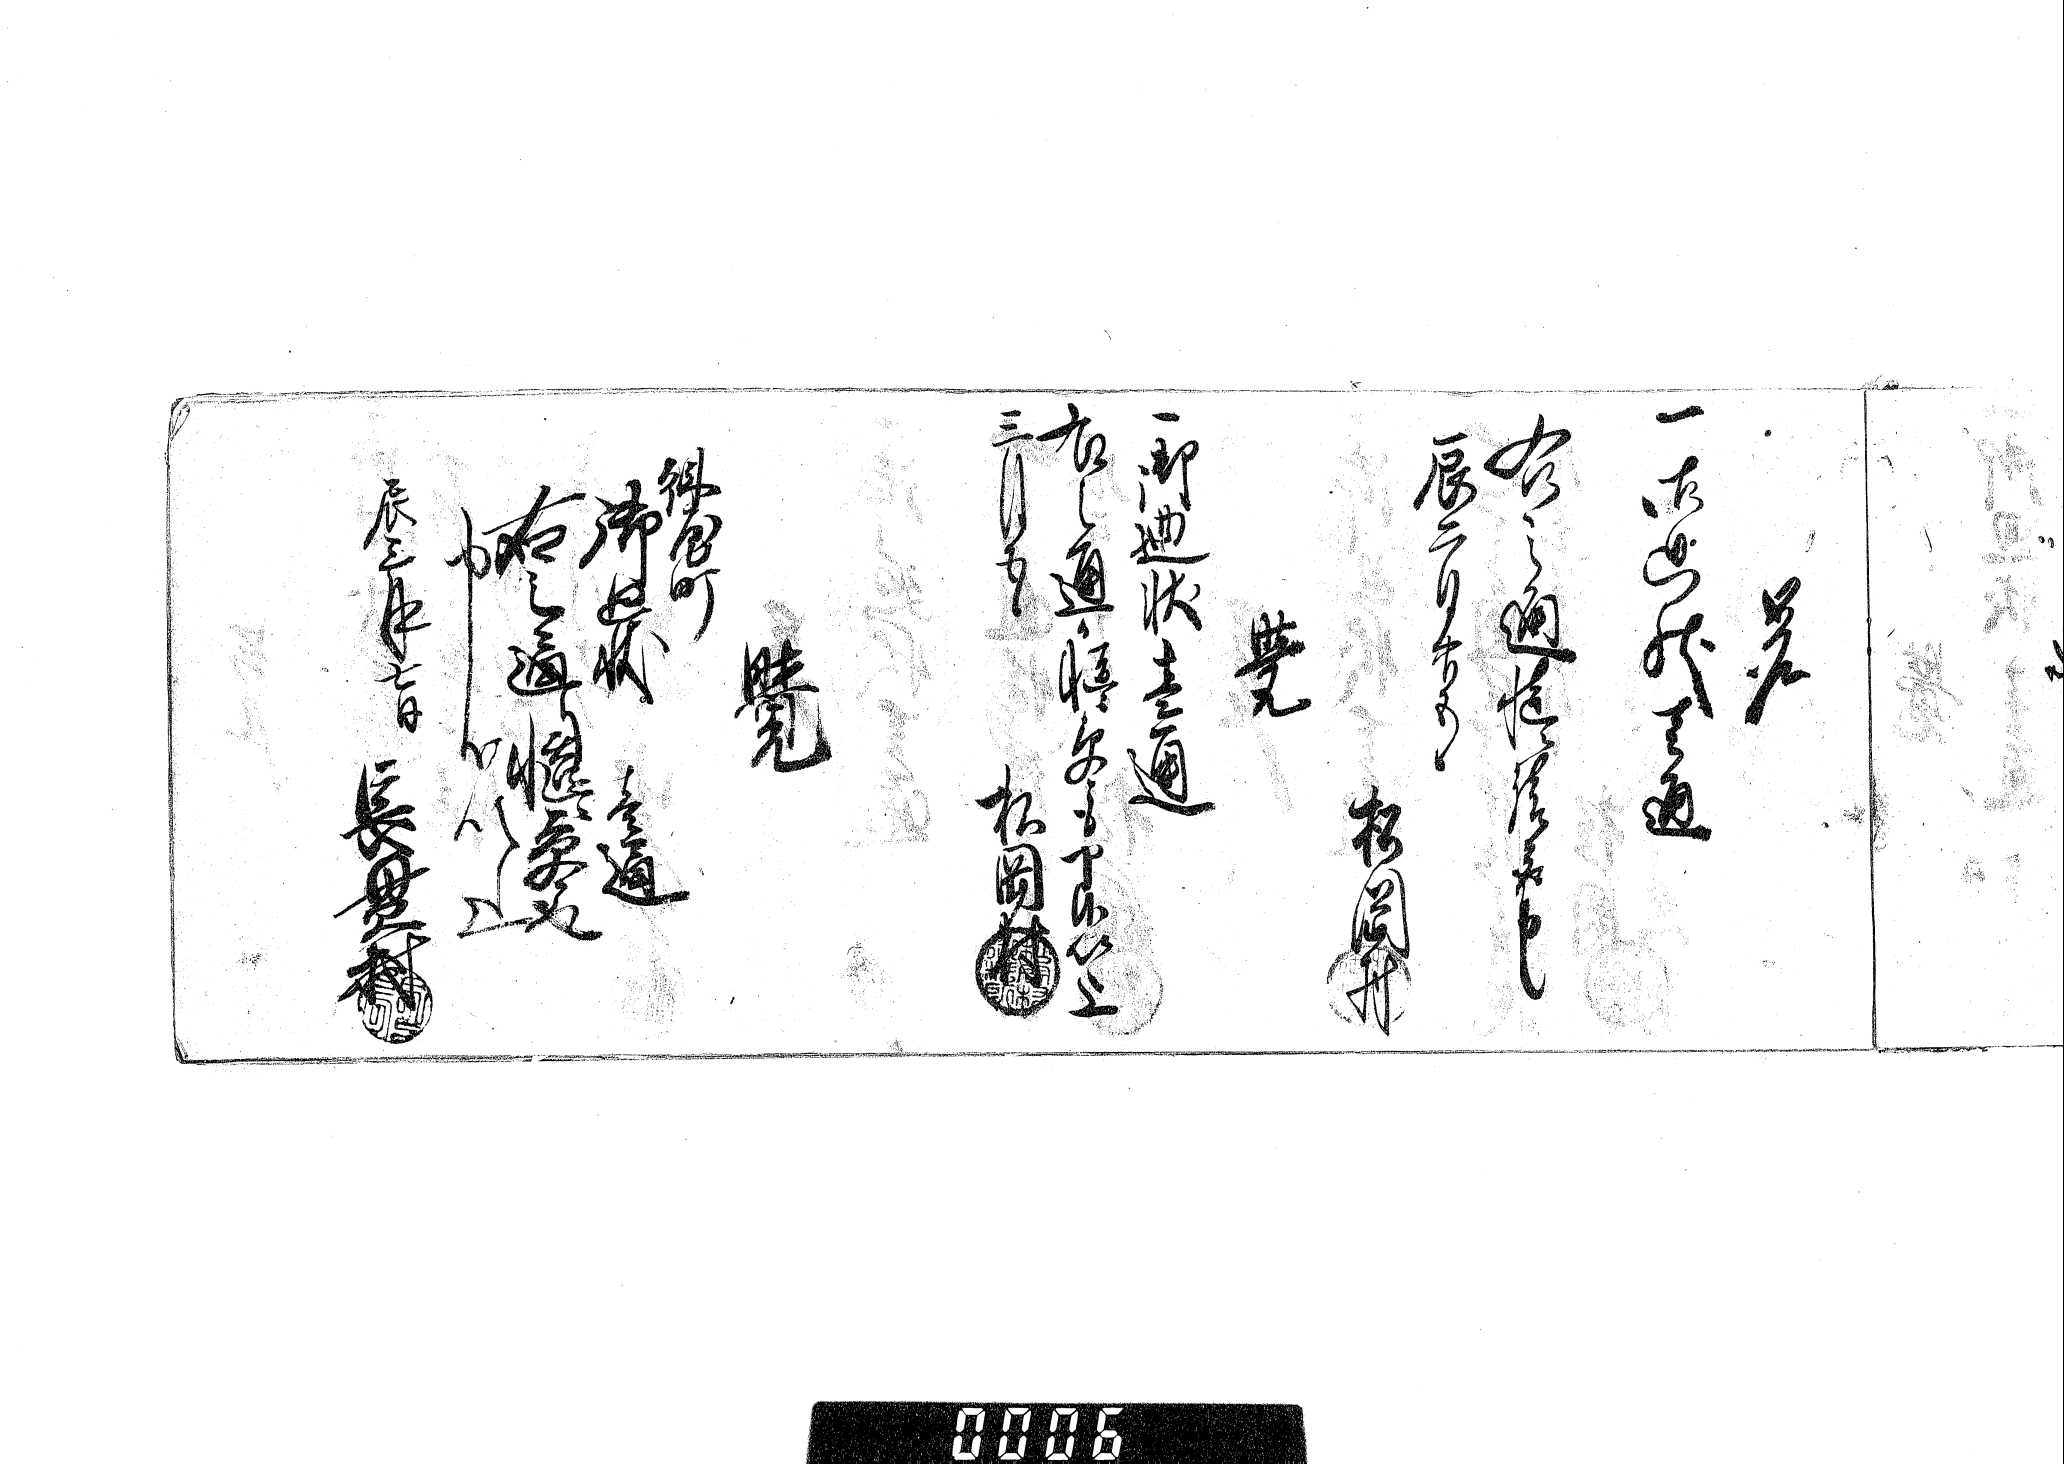 覚
一御廻状壱通
右之通慥落手申候
辰二月廿五日
松岡村
覚
一御廻状壱通
右之通り慥ニ受取申候以上
三月五日
松岡村
覚
御廻状 壱通
右之通り慥ニ受取
辰三月七日
長貫村
0006